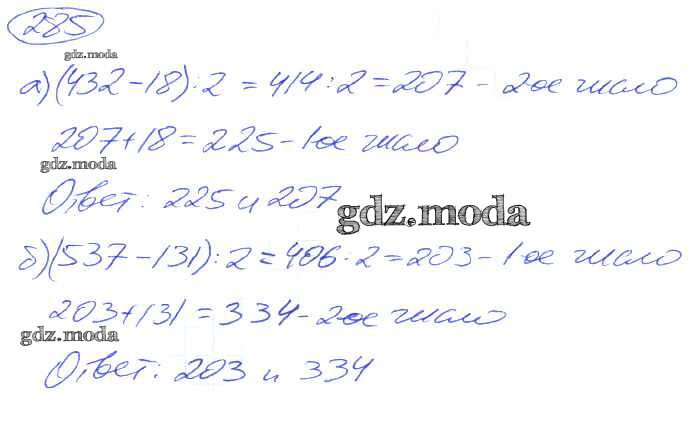 285
gdz.moda
а) (432-18):2=414:2=207-2ое число
207+18=225-1ое число
gdz.moda
Ответ: 225 и 207
gdz.moda
б) (537-131):2=406·2=203-1ое число
203+131=334-2ое число
gdz.moda
Ответ: 203 и 334